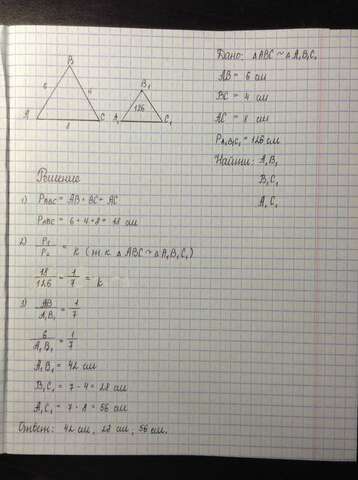 Дано: △ABC ~ △A₁B₁C₁
AB = 6 см
BC = 4 см
AC = 8 см
P A₁B₁C₁ = 126 см
Найти: A₁B₁
B₁C₁
A₁C₁
B
6
4
A
8
C
B₁
126
A₁
C₁
Решение
1) PABC = AB + BC + AC
PABC = 6 + 4 + 8 = 18 см
2) P₁/P₂ = k (т.к. △ABC ~ △A₁B₁C₁)
18/126 = 1/7 = k
3) AB/A₁B₁ = 1/7
6/A₁B₁ = 1/7
A₁B₁ = 42 см
B₁C₁ = 7 · 4 = 28 см
A₁C₁ = 7 · 8 = 56 см
Ответ: 42 см, 28 см, 56 см.